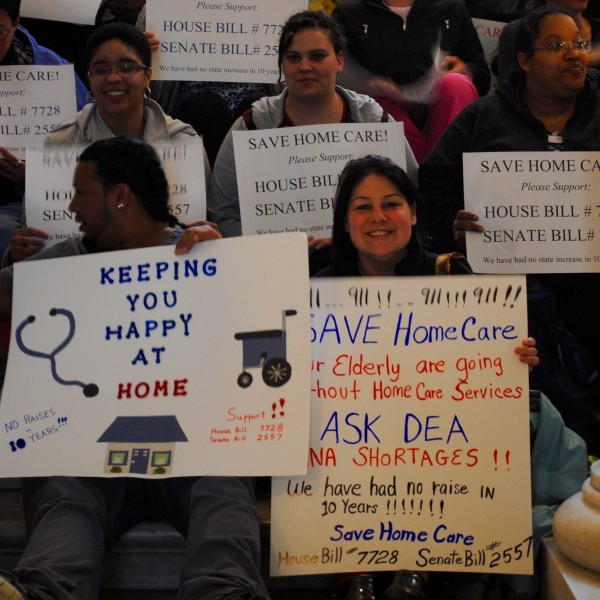 Please Support:
HOUSE BILL # 772
SENATE BILL# 2
We have had no state increase in 10
E CARE!
BILL # 7728
BILL# 255
SAVE HOME CARE!
Please Support:
HOUSE BILL
SENATE BILL
We have had no state
HOUSE
SENATE
2557
We have
SAVE HOME CA
Please Support:
HOUSE BILL # 7
SENATE BILL#
We have had no state increase in 10
KEEPING
YOU
HAPPY
AT
HOME
NO RAISES
IN
10 YEARS!!!
Support !!
House Bill 7728
Senate Bill 2557
911 !! 911 911 !!
SAVE Home Care
ur Elderly are going
hout Home Care Services
ASK DEA
NA SHORTAGES !!
We have had no raise IN
10 Years !!!!!!!
Save Home Care
House Bill # 7728 Senate Bill # 2557